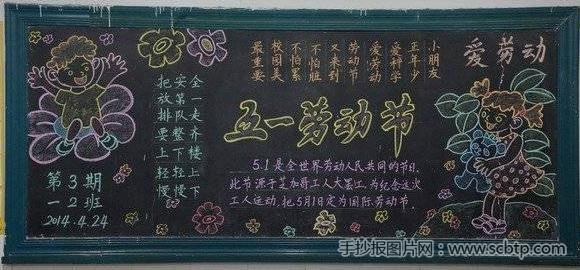 小朋友
正年少
爱科学
爱劳动
劳动节
又来到
不怕脏
不怕累
校园美
最重要
爱劳动
把安全
放第一
排队走
要整齐
上下楼
轻轻上
慢慢下
五一劳动节
5.1是全世界劳动人民共同的节日.
此节源于芝加哥工人大罢工,为纪念这次
工人运动,把5月1日定为国际劳动节.
第3期
一2班
2014.4.24
手抄报图片网:www.scbtp.com